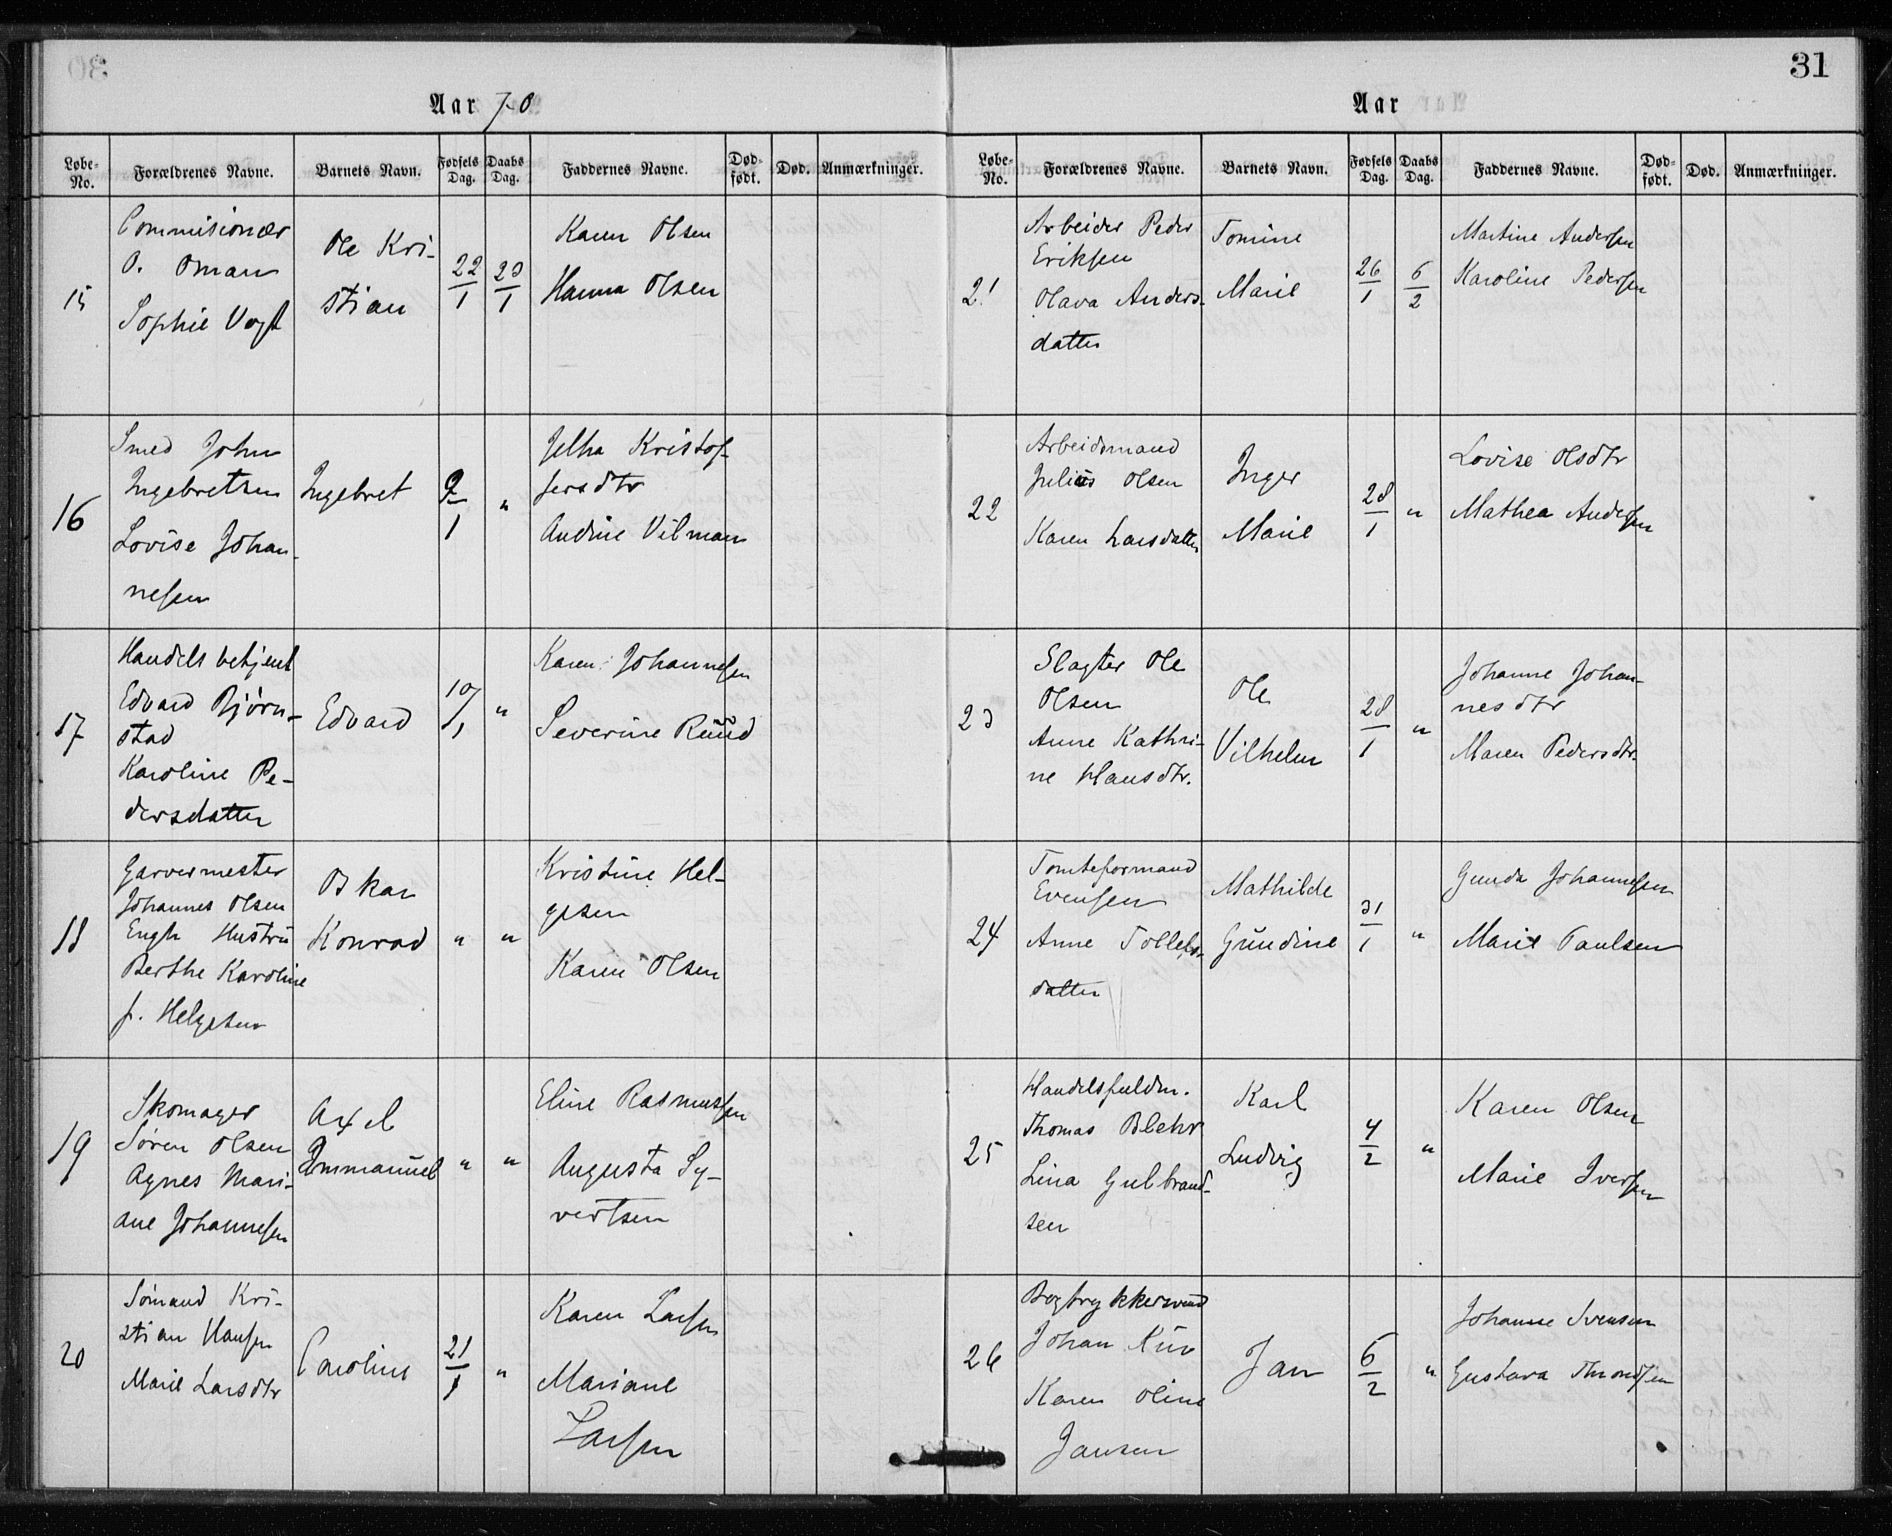 Aar 70
Løbe-No. Forældrenes Navne. Barnets Navn. Fødsels Dag. Daabs Dag. Faddernes Navne. Død-født. Død. Anmærkninger.
15
Commisionær
O. Oman
Sophie Vogt
Ole Kri-
stian
22/1
23/1
Karen Olsen
Hanna Olsen
16
Smed John
Ingebretsen
Lovise Johan-
nesen
Ingebret
9/1
"
Jelha Kristof-
fersdtr
Andrine Vilman
17
Handelsbetjent
Edvard Bjørn-
stad
Karoline Pe-
dersdatter
Edvard
10/1
"
Karen Johannesen
Severine Ruud
18
Garvermester
Johannes Olsen
Engh Hustru
Berthe Karoline
f. Helgesen
Oskar
Konrad
"
"
Kristine Hel-
gesen
Karen Olsen
19
Skomager
Søren Olsen
Agnes Mari-
ane Johannesen
Axel
Emmanuel
"
"
Eline Rasmussen
Augusta Sy-
vertsen
20
Sømand Kri-
stian Hansen
Marie Larsdtr
Caroline
21/1
"
Karen Larsen
Mariane
Larsen
31
Aar
Løbe-No. Forældrenes Navne. Barnets Navn. Fødsels Dag. Daabs Dag. Faddernes Navne. Død-født. Død. Anmærkninger.
21
Arbeider Peder
Eriksen
Olava Anders-
datter
Tomine
Marie
26/1
6/2
Martine Andersen
Karoline Pedersen
22
Arbeidsmand
Julius Olsen
Karen Larsdatter
Inger
Marie
28/1
"
Lovise Olsdtr
Mathea Andersen
23
Slagter Ole
Olsen
Anne Kathri-
ne Hansdtr.
Ole
Vilhelm
28/1
"
Johanne Johan-
nesdtr
Maren Pedersdtr.
24
Tomteformand
Evensen
Anne Tollefs-
datter
Mathilde
Gundine
31/1
"
Gunda Johannesen
Marie Paulsen
25
Handelsfuldm.
Thomas Blehr
Lina Gulbrand-
sen
Karl
Ludvig
4/2
"
Karen Olsen
Marie Iversen
26
Bogtrykkersvend
Johan
Karen Oline
Jansen
Jan
6/2
"
Johanne Svensen
Gustava Throndsen